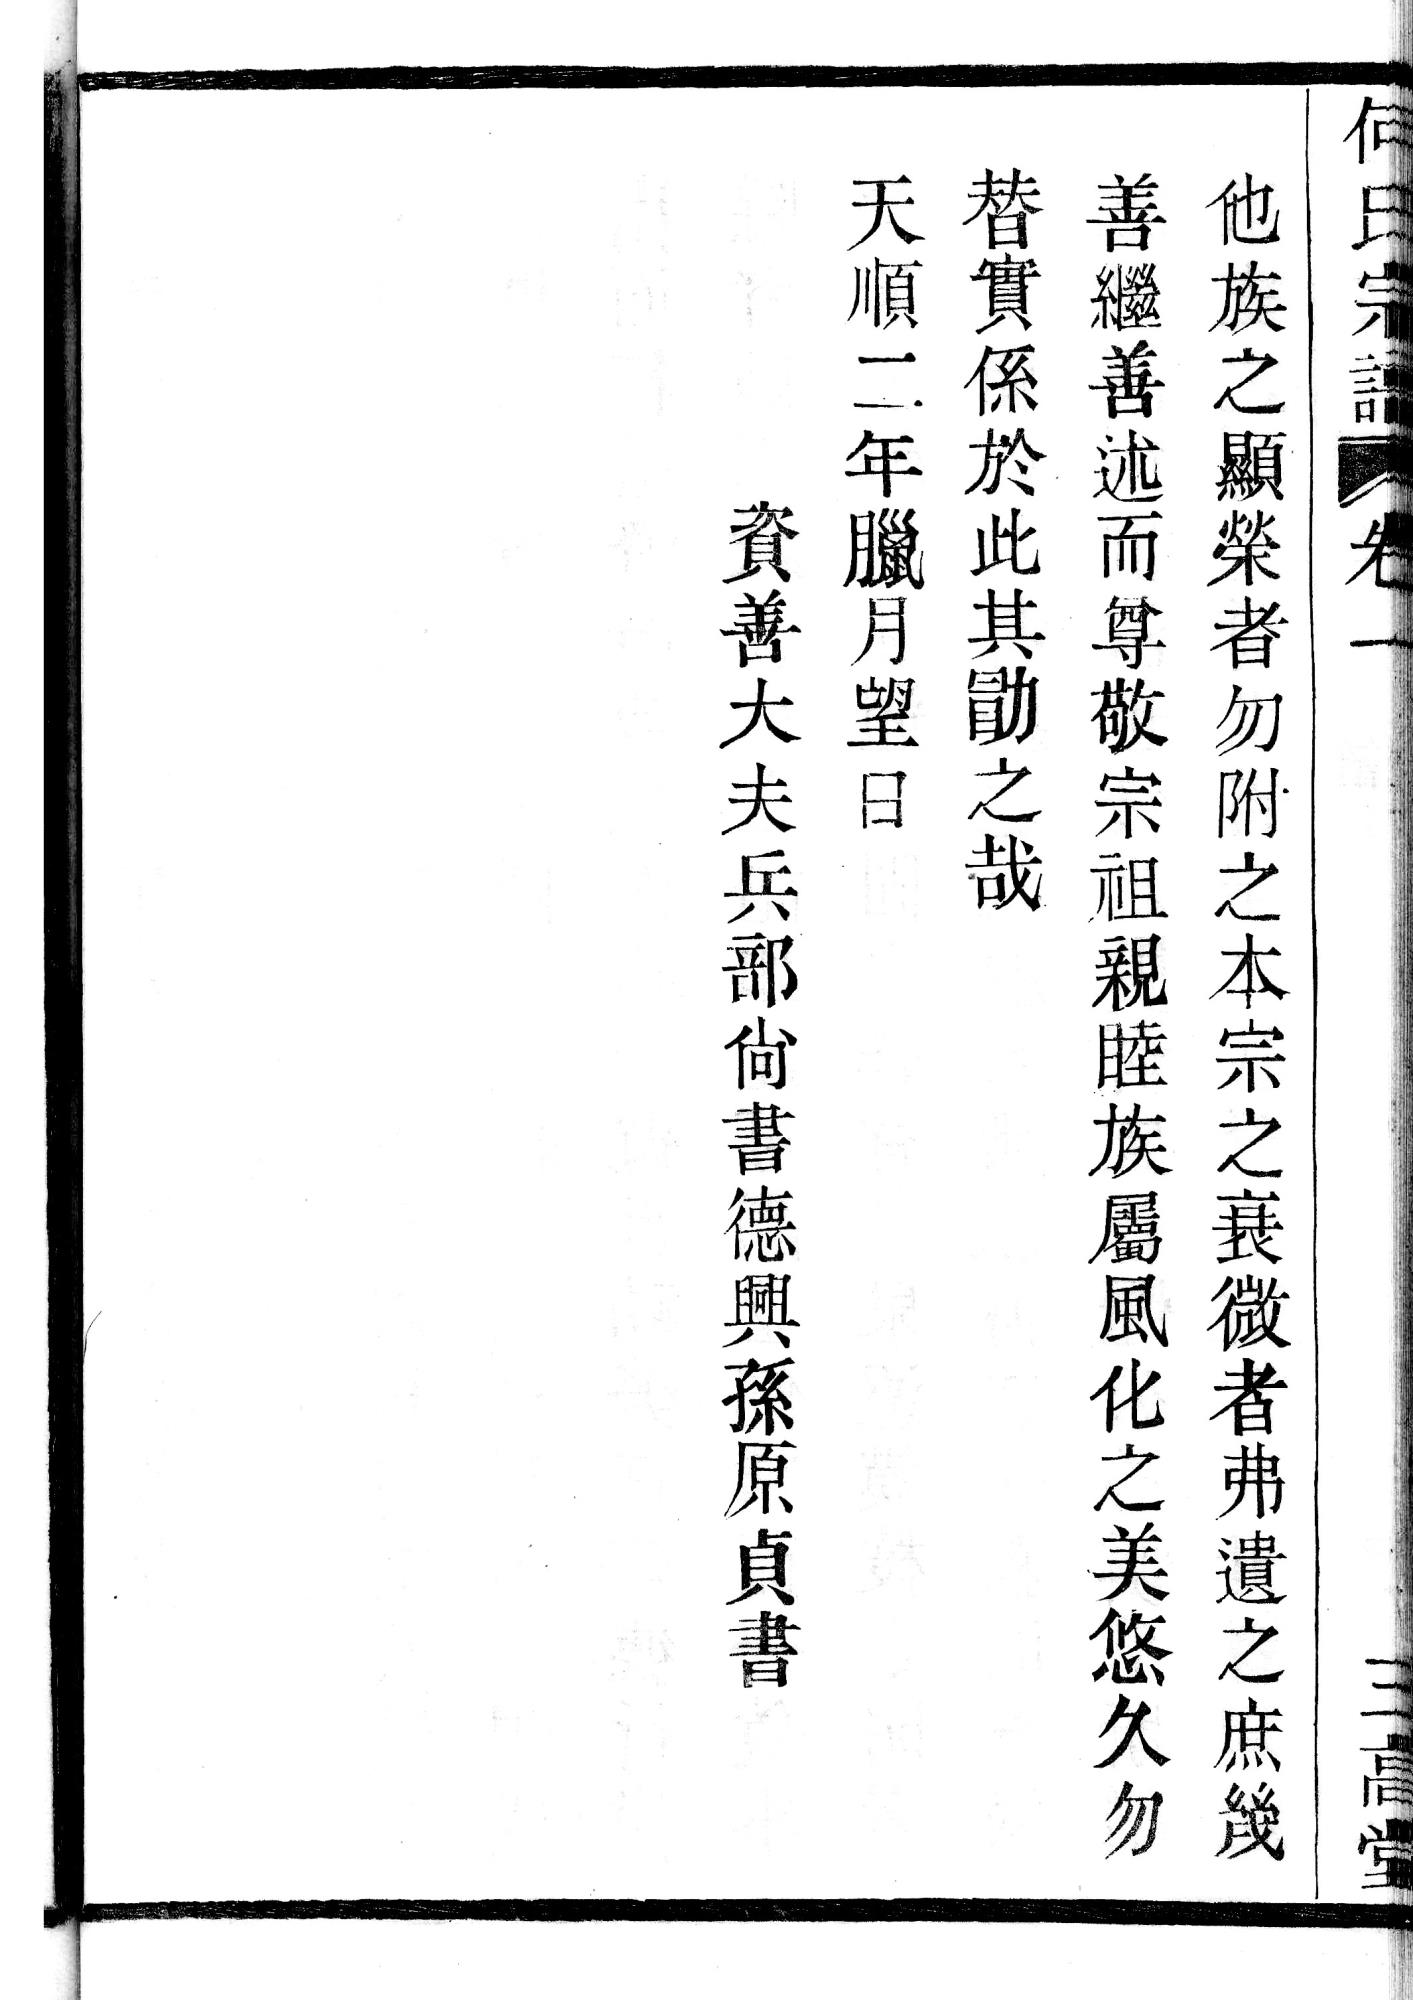 何氏宗譜 卷一 三高堂
他族之顯榮者勿附之本宗之衰微者弗遺之庶幾
善繼善述而尊敬宗祖親睦族屬風化之美悠久勿
替實係於此其勖之哉
天順二年臘月望日
資善大夫兵部尙書德興孫原貞書